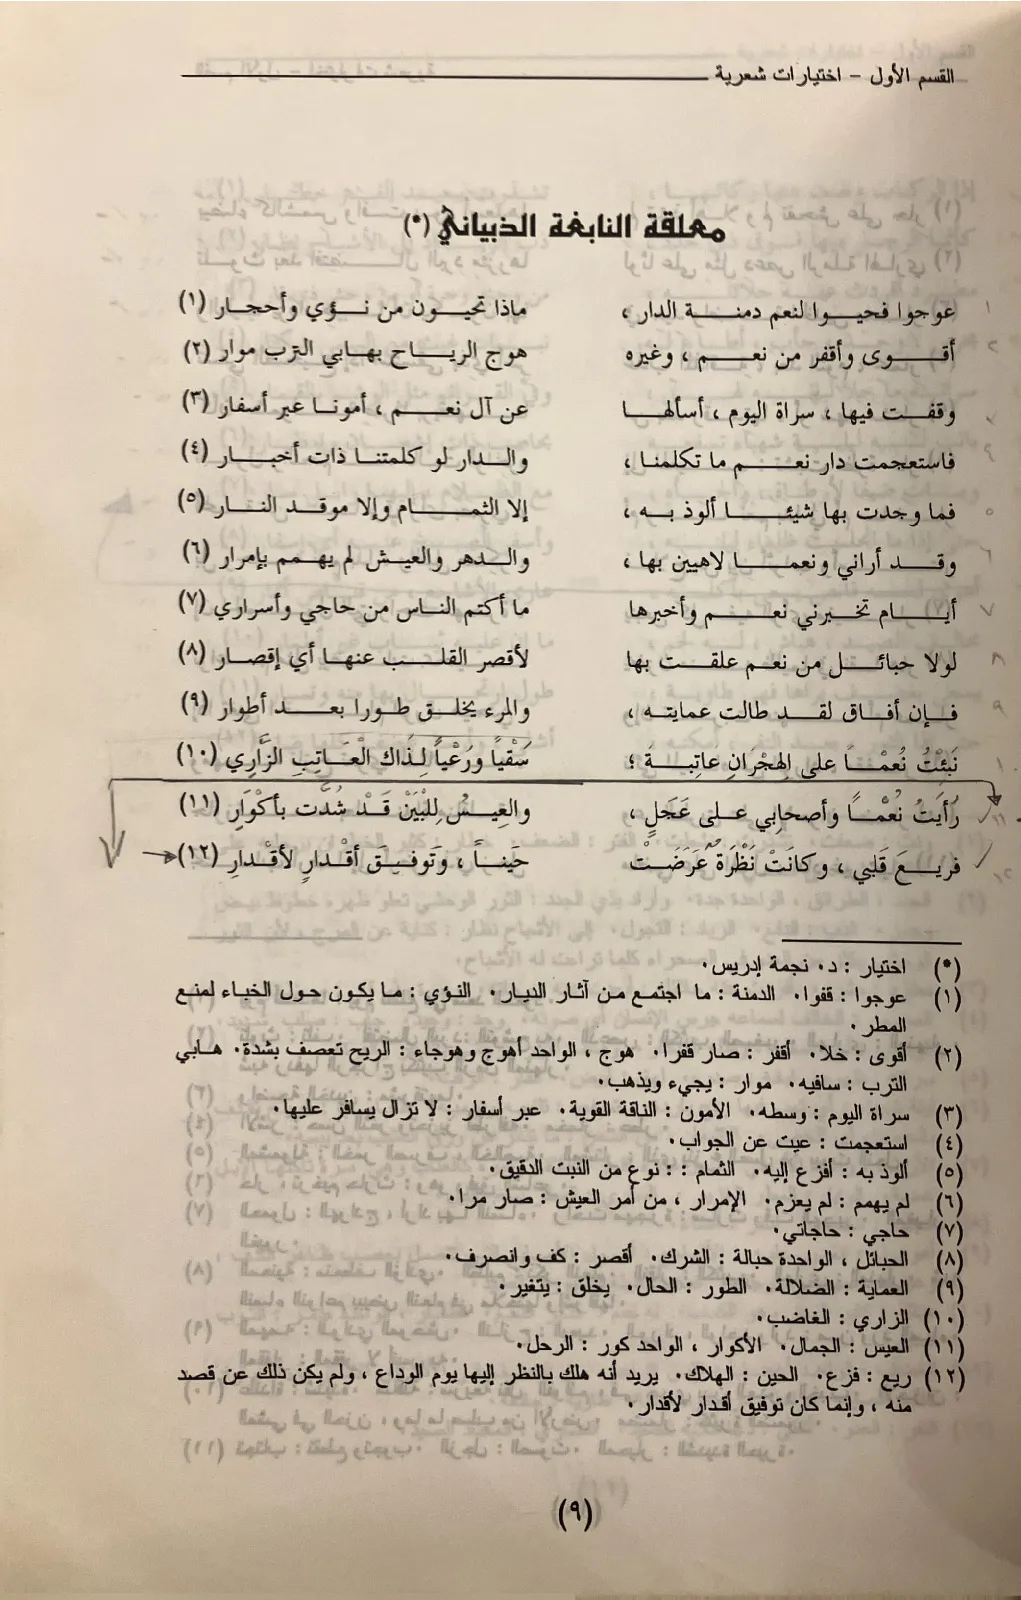 القسم الأول - اختيارات شعرية
معلقة النابغة الذبياني (*)
عوجوا فحيوا لنعم دمنة الدار ، ماذا تحيون من نؤي وأحجار (١)
أقوى وأقفر من نعم ، وغيره هوج الرياح بهابي الترب موار (٢)
وقفت فيها ، سراة اليوم ، أسألها عن آل نعم ، أمونا عبر أسفار (٣)
فاستعجمت دار نعم ما تكلمنا ، والدار لو كلمتنا ذات أخبار (٤)
فما وجدت بها شيئا ألوذ به ، إلا الثمام وإلا موقد النار (٥)
وقد أراني ونعما لاهيين بها ، والدهر والعيش لم يهمم بإمرار (٦)
أيام تخبرني نعم وأخبرها ما أكتم الناس من حاجي وأسراري (٧)
لولا حبائل من نعم علقت بها لأقصر القلب عنها أي إقصار (٨)
فإن أفاق لقد طالت عمايته ، والمرء يخلق طورا بعد أطوار (٩)
نَبئْتُ نُعْمًا على الهِجْرَانِ عَاتِبةً ؛ سَقْياً ورَعْياً لِذَاك الْعَاتِبِ الزَّارِي (١٠)
رَأيَتُ نُعْمًا وأصحَابِي على عَجَلٍ ، والعِيسُ لِلْبَيْنِ قَدْ شُدَّت بأكْوَارِ (١١)
فريعَ قَلبِي ، وكانَتْ نَظْرَةً عَرَضَتْ حَيناً ، وَتَوفيقَ أقْدارٍ لأقْدارِ (١٢)
(*) اختيار : د. نجمة إدريس.
(١) عوجوا : قفوا. الدمنة : ما اجتمع من آثار الديار. النؤي : ما يكون حول الخباء لمنع
المطر.
(٢) أقوى : خلا. أقفر : صار قفرا. هوج ، الواحد أهوج وهوجاء : الريح تعصف بشدة. هابي
الترب : سافيه. موار : يجيء ويذهب.
(٣) سراة اليوم : وسطه. الأمون : الناقة القوية. عبر أسفار : لا تزال يسافر عليها.
(٤) استعجمت : عيت عن الجواب.
(٥) ألوذ به : أفزع إليه. الثمام : : نوع من النبت الدقيق.
(٦) لم يهمم : لم يعزم. الإمرار ، من أمر العيش : صار مرا.
(٧) حاجي : حاجاتي.
(٨) الحبائل ، الواحدة حبالة : الشرك. أقصر : كف وانصرف.
(٩) العماية : الضلالة. الطور : الحال. يخلق : يتغير.
(١٠) الزاري : الغاضب.
(١١) العيس : الجمال. الأكوار ، الواحد كور : الرحل.
(١٢) ريع : فزع. الحين : الهلاك. يريد أنه هلك بالنظر إليها يوم الوداع ، ولم يكن ذلك عن قصد
منه ، وإنما كان توفيق أقدار لأقدار.
(٩)